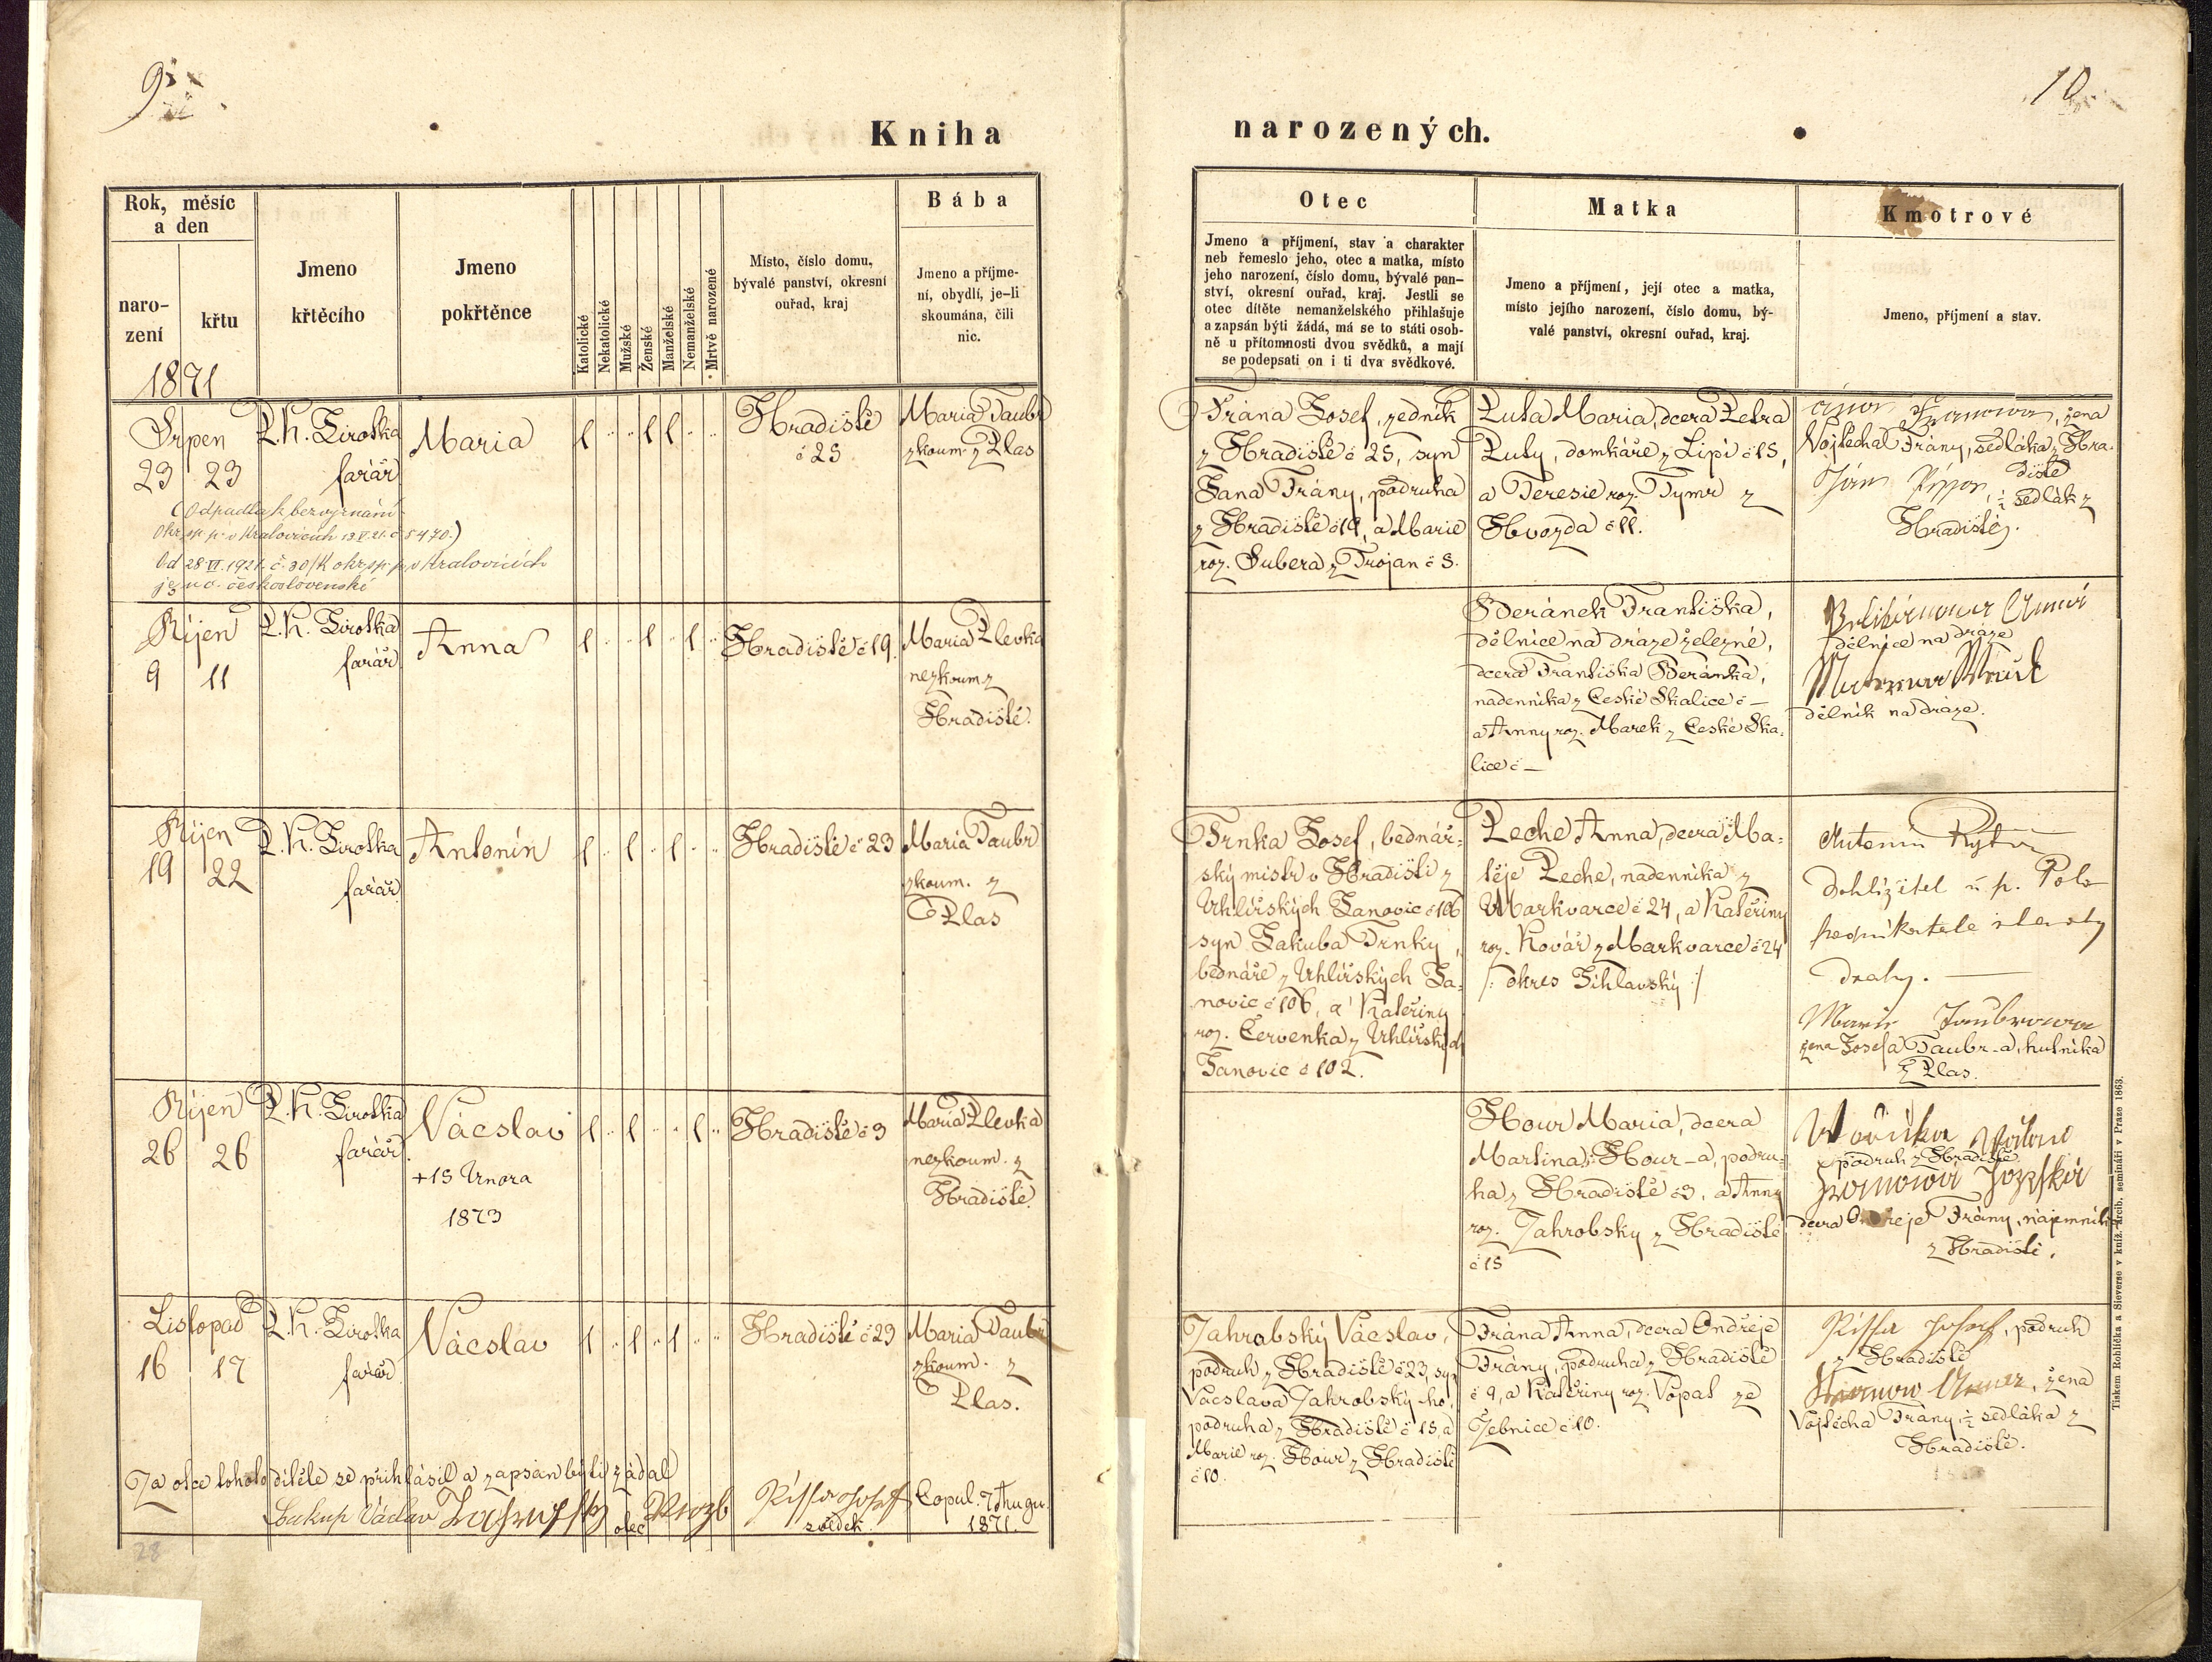 9.
10.
Kniha
narozených.
Rok, měsíc
a den
naro-
zení
křtu
1871
Jmeno
křtěcího
Jmeno
pokřtěnce
Katolické
Nekatolické
Mužské
Ženské
Manželské
Nemanželské
Mrtvě narozené
Místo, číslo domu,
bývalé panství, okresní
ouřad, kraj
Bába
Jmeno a příjme-
ní, obydlí, je-li
skoumána, čili
nic.
Otec
Jmeno a příjmení, stav a charakter
neb řemeslo jeho, otec a matka, místo
jeho narození, číslo domu, bývalé pan-
ství, okresní ouřad, kraj. Jestli se
otec dítěte nemanželského přihlašuje
a zapsán býti žádá, má se to státi osob-
ně u přítomnosti dvou svědků, a mají
se podepsati on i ti dva svědkové.
Matka
Jmeno a příjmení, její otec a matka,
místo jejího narození, číslo domu, bý-
valé panství, okresní ouřad, kraj.
Kmotrové
Jmeno, příjmení a stav.
Srpen
23 23
P. H. Sirotka
farář
Maria
1 1 1
Hradiště
č 25
Maria Taubr
zkoum. z Plas
(Odpadla k bezvyznání
Okr. sp. p. v Kralovicích 13.V.21. č 5470.)
Od 28 VI. 1921. č. 30/K okr. sp. p. v Kralovicích
je u c. československé
Frána Josef, zedník
z Hradiště č 25, syn
Jana Frány, podruha
z Hradiště č 19, a Marie
roz. Subera z Trojan č 3.
Puta Maria, dcera Petra
Puty, domkáře z Lipí č 15,
a Teresie roz. Tymr z
Hvozda č 11.
Franowa, žena
Vojtěcha Frány, sedláka z Hra-
diště
½ sedlák z
Hradiště.
Říjen
9 11
P. H. Sirotka
farář
Anna
1 1 1
Hradiště č 19.
Maria Plevka
nezkoum. z
Hradiště.
Beránek Františka,
dělnice na dráze železné,
dcera Františka Beránka,
nádenníka z České Skalice č —
a Anny roz. Marek z České Ska-
lice č —
dělnice na dráze
dělník na dráze.
Říjen
19 22
P. H. Sirotka
farář
Antonín
1 1 1
Hradiště č 23
Maria Taubr
zkoum. z
Plas
Trnka Josef, bednář-
ský mistr v Hradišti z
Uhlířských Janovic č 106
syn Jakuba Trnky,
bednáře z Uhlířských Ja-
novic č 106, a Kateřiny
roz. Červenka z Uhlířských
Janovic č 102.
Peche Anna, dcera Ma-
těje Peche, nádenníka z
Markvarce č 24, a Kateřiny
roz. Kovář z Markvarce č 24
/: okres Jihlavský :/
Antonín
Dohlížitel u p.
podnikatele stavby
drahy.
Marie Taubrowa
žena Josefa Taubr-a, hutníka
z Plas.
Říjen
26 26
P. H. Sirotka
farář
Vácslav
+15 Února
1873
1 1 1
Hradiště č 3
Maria Plevka
nezkoum. z
Hradiště.
Hour Maria, dcera
Martina Hour-a, podru-
ha z Hradiště č 3, a Anny
roz. Zahrobsky z Hradiště
č 15
podruh z Hradiště
Franowa Jozefka
dcera Ondřeje Frány, nájemníka
z Hradiště.
Listopad
16 17
P. H. Sirotka
farář
Vácslav
1 1 1
Hradiště č 23
Maria Taubr
zkoum. z
Plas.
Zahrobský Vácslav,
podruh z Hradiště č 23, syn
Vácslava Zahrobský-ho,
podruha z Hradiště č 15, a
Marie roz. Hour z Hradiště
č 10.
Frána Anna, dcera Ondřeje
Frány, podruha z Hradiště
č 9, a Kateřiny roz. Vopat ze
Žebnice č 10.
Josef, podruh
z Hradiště
žena
Vojtěcha Frány, ½ sedláka z
Hradiště.
Za otce tohoto dítěte se přihlásil a zapsán býti žádal
Václav otec
Josef
svědek
Copul. 7
1871.
28
Tiskem Rohlíčka a Sieverse v kníž. arcib. semináři v Praze 1863.